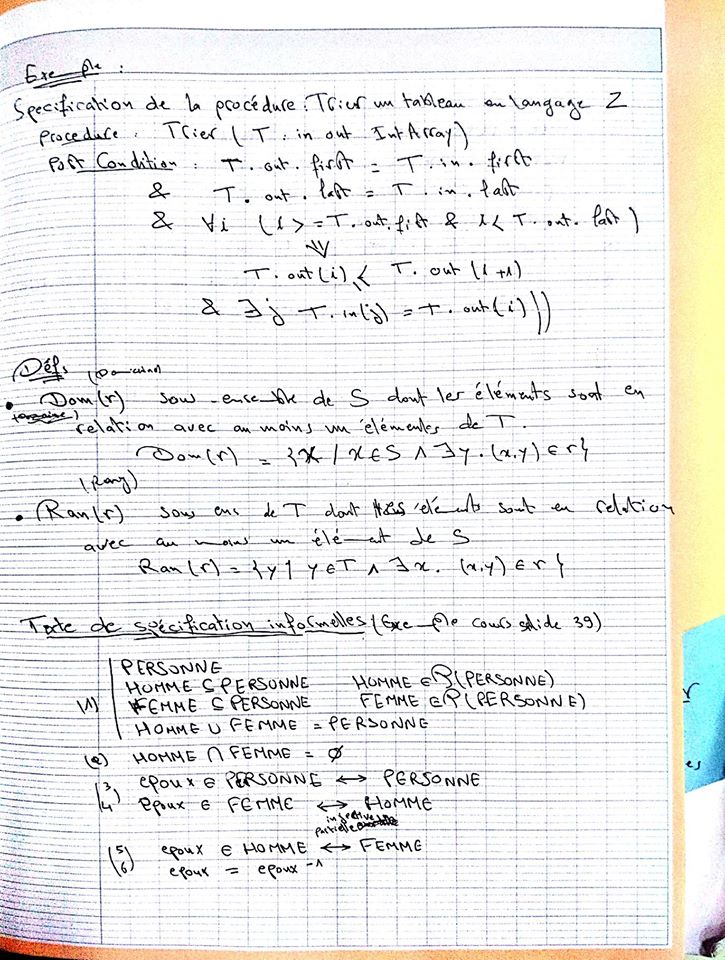 Exemple :
Specification de la procédure : Trier un tableau en langage Z
Procedure : Trier ( T : in out IntArray)
Post Condition : T. out. first = T. in. first
& T. out. last = T. in. last
& ∀i (i >= T. out. fist & i < T. out. last )
⇓
T. out(i) ⩽ T. out (i+1)
& ∃j T. in(j) = T. out(i) ))
Défs (Domaine)
• Dom(r) sous-ensemble de S dont les éléments sont en
relation avec au moins un élémentes de T.
Dom(r) = {x / x ∈ S ∧ ∃y . (x,y) ∈ r}
(Rang)
• Ran(r) sous ens de T dont les éléments sont en relation
avec au moins un élément de S
Ran(r) = {y / y ∈ T ∧ ∃x. (x,y) ∈ r}
Texte de spécification informelles (Exemple cours slide 39)
PERSONNE
HOMME ⊆ PERSONNE HOMME ∈ P(PERSONNE)
(1) FEMME ⊆ PERSONNE FEMME ∈ P(PERSONNE)
HOMME ∪ FEMME = PERSONNE
(2) HOMME ∩ FEMME = ∅
(3 epoux ∈ PERSONNE ↔ PERSONNE
4) epoux ∈ FEMME ↔ HOMME
injective
partielle
(5 epoux ∈ HOMME ↔ FEMME
6) epoux = epoux⁻¹
r
es